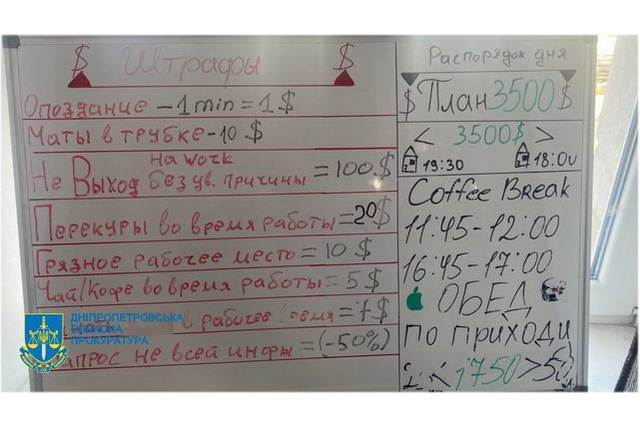 $ Штрафы $
Опоздание – 1 min = 1 $
Маты в трубке - 10 $
Не Выход на work без ув. причины = 100 $
Перекуры во время работы = 20 $
Грязное рабочее место = 10 $
Чай/Кофе во время работы = 5 $
в рабочее время =
не всей инфы = (-50%)
ДНІПРОПЕТРОВСЬКА
ОБЛАСНА
ПРОКУРАТУРА
Распорядок дня
$ План 3500 $
< 3500$ >
19:30 18:00
Coffee Break
11:45 - 12:00
16:45 - 17:00
ОБЕД
по приходи
1750 >